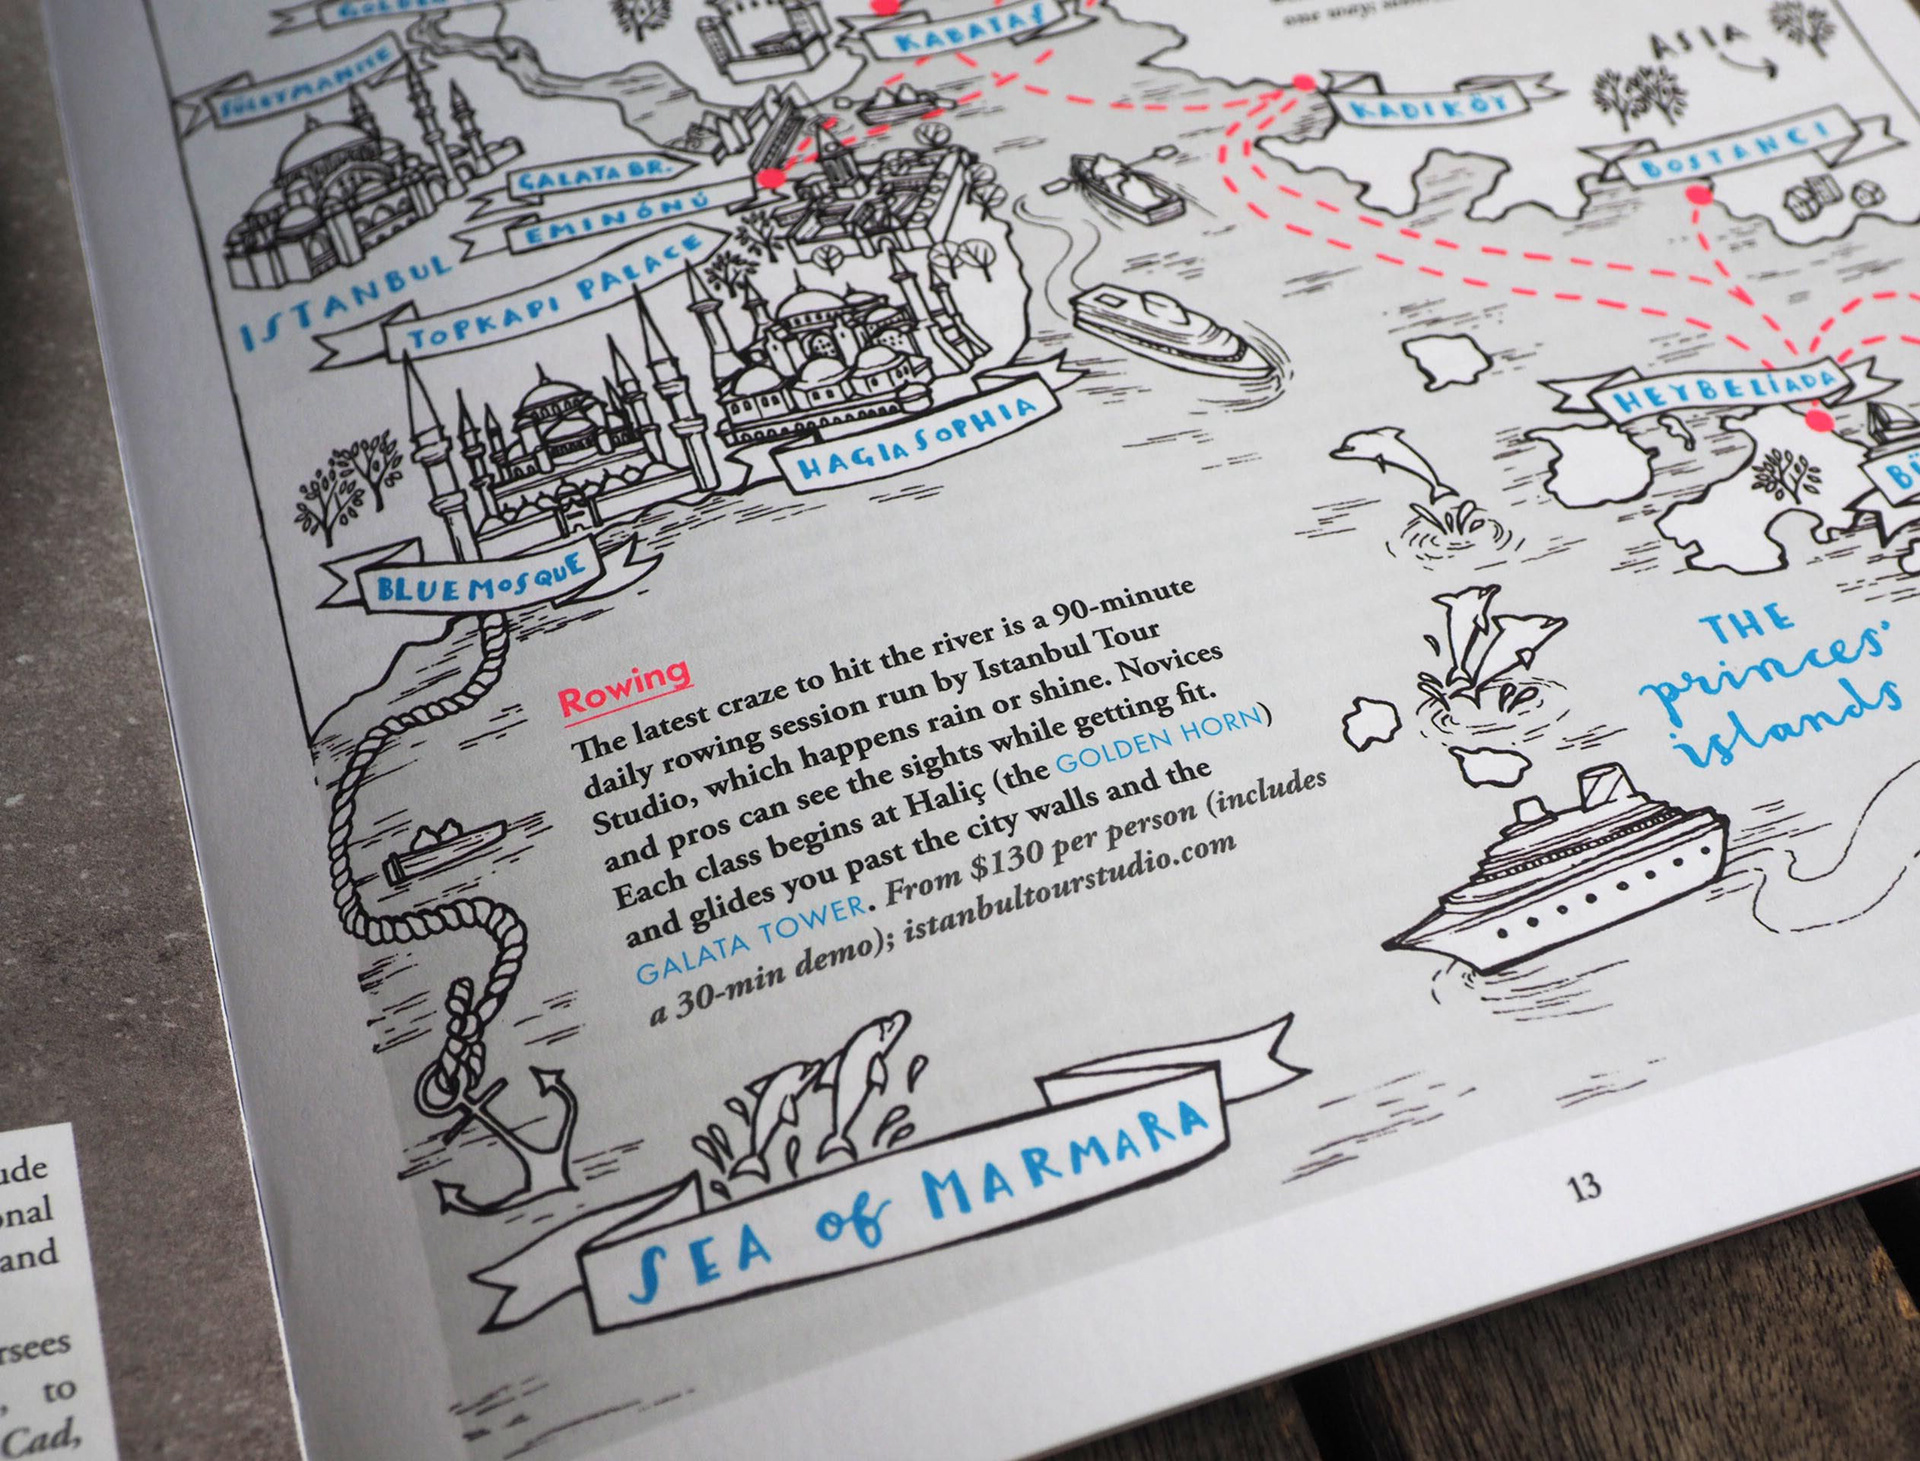 KABATAŞ
one way;
ASIA
SÜLEYMANIYE
KADIKÖY
BOSTANCI
GALATA BR.
EMİNÖNÜ
ISTANBUL
TOPKAPI PALACE
HEYBELİADA
HAGIA SOPHIA
BÜ
BLUE MOSQUE
THE
princes'
islands
Rowing
The latest craze to hit the river is a 90-minute
daily rowing session run by Istanbul Tour
Studio, which happens rain or shine. Novices
and pros can see the sights while getting fit.
Each class begins at Haliç (the GOLDEN HORN)
and glides you past the city walls and the
GALATA TOWER. From $130 per person (includes
a 30-min demo); istanbultourstudio.com
SEA of MARMARA
13
ude
onal
and
rsees
, to
Cad,